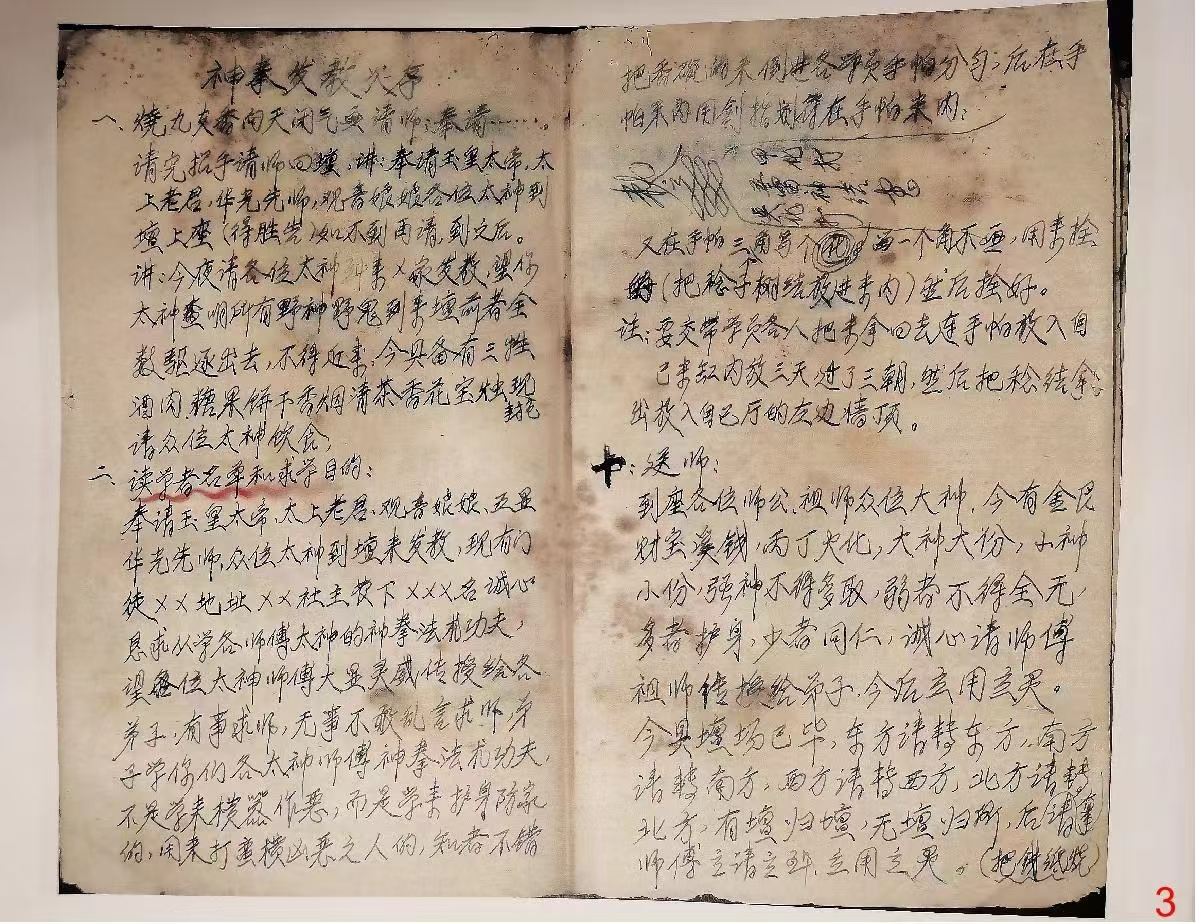 神拳发教大字
一、烧九支香向天闭气画请师：奉请……。
请完招手请师回坛，讲：奉请玉皇大帝，太
上老君，华光先师，观音娘娘各位大神到
壇上座（得胜告）如不到再请，到之后。
讲：今夜请各位大神到来X家发教，望你
大神查明所有野神野鬼到来壇前者全
数驱逐出去，不得近来，今具备有三牲
酒肉糖果饼干香烟清茶香花宝烛现
封包
请众位大神饮食，
二、读学者名单和求学目的：
奉请玉皇大帝、太上老君、观音娘娘、五显
华光先师，众位大神到壇来发教，现有门
徒XX地址XX社主管下XXX名诚心
恳求从学各师傅大神的神拳法术功夫，
望各位大神师傅大显灵威传授给各
弟子，有事求师，无事不敢乱言求师，弟
子学你们各大神师傅神拳法术功夫，
不是学来横嚣作恶，而是学来护身防家
的，用来打蛮横凶恶之人的，知者不错
把香碗的米倒进各学员手帕分匀；后在手
帕米内用剑指划符在手帕米内：
又在手帕三角写个 留一个角不画，用来拴
（把稔子树结放进米内）然后拴好。
注：要交带学员各人把米拿回去连手帕放入自
己米缸内放三天过了三朝，然后把稔结拿
出放入自己厅的左边墙顶。
十：送师：
到座各位师公、祖师众位大神，今有金银
财宝溪钱，丙丁火化，大神大份，小神
小份，强神不得多取，弱者不得全无，
多者护身，少者同仁，诚心请师傅
祖师传授给弟子，今后立用立灵。
今具壇场已毕，东方请转东方，南方
请转南方，西方请转西方，北方请转
北方，有壇归壇，无壇归所，后请
师傅立请立到，立用立灵。（把钱纸烧
3